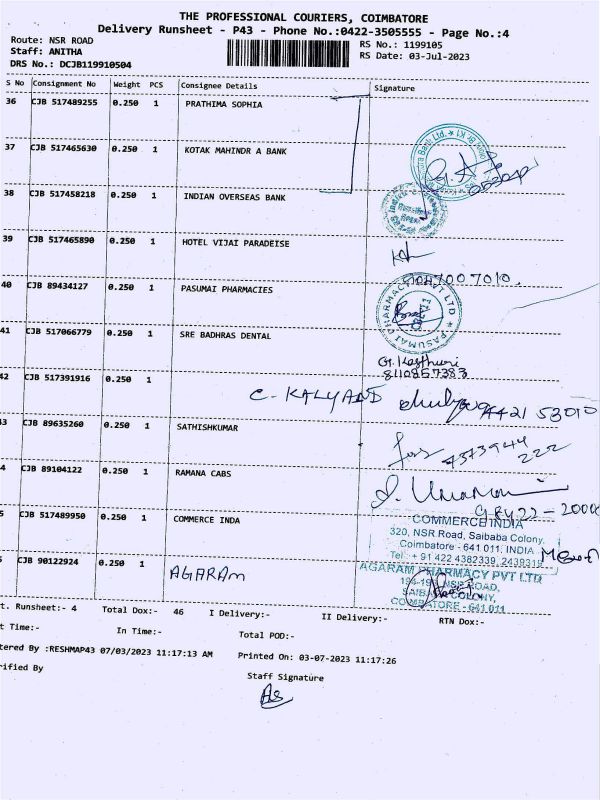 THE PROFESSIONAL COURIERS, COIMBATORE
Delivery Runsheet - P43 - Phone No.:0422-3505555 - Page No.:4
Route: NSR ROAD
RS No.: 1199105
Staff: ANITHA
RS Date: 03-Jul-2023
DRS No.: DCJB119910504
S No Consignment No Weight PCS Consignee Details Signature
36 CJB 517489255 0.250 1 PRATHIMA SOPHIA
37 CJB 517465630 0.250 1 KOTAK MAHINDR A BANK
38 CJB 517458218 0.250 1 INDIAN OVERSEAS BANK
39 CJB 517465890 0.250 1 HOTEL VIJAI PARADEISE
40 CJB 89434127 0.250 1 PASUMAI PHARMACIES
PASUMAI PHARMACY PVT LTD
41 CJB 517066779 0.250 1 SRE BADHRAS DENTAL
G. Kasthuri
8110857383
42 CJB 517391916 0.250 1
C. KALYAND 94421 53010
3 CJB 89635260 0.250 1 SATHISHKUMAR
for 4373944
222
4 CJB 89104122 0.250 1 RAMANA CABS
5 CJB 517489950 0.250 1 COMMERCE INDA
COMMERCE INDIA
320, NSR Road, Saibaba Colony,
Coimbatore - 641 011. INDIA
Tel : + 91 422 4382339, 2439319
CJB 90122924 0.250 1 AGARAM
AGARAM PHARMACY PVT LTD
NSR ROAD,
SAIBABA COLONY,
COIMBATORE - 641 011
t. Runsheet:- 4 Total Dox:- 46 I Delivery:- II Delivery:- RTN Dox:-
t Time:- In Time:- Total POD:-
tered By :RESHMAP43 07/03/2023 11:17:13 AM Printed On: 03-07-2023 11:17:26
rified By Staff Signature